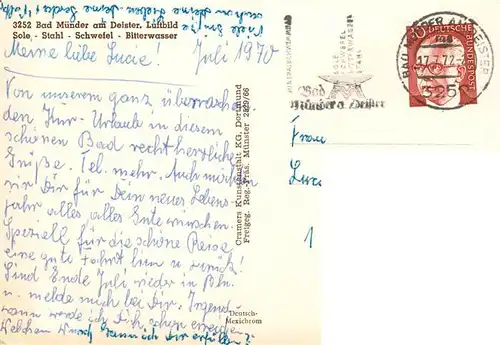 3252 Bad Münder am Deister, Luftbild
Sole - Stahl - Schwefel - Bitterwasser
Meine liebe Lucie! Juli 1970
Von unserem ganz überraschen
den Kur-Urlaub in diesem
schönen Bad recht herzliche
Grüße. Tel. mehr. Auch möchten
wir Dir für Dein neues Lebens
jahr alles alles Gute wünschen
Speziell für die schöne Reise
eine gute Fahrt hin u zurück!
Sind Ende Juli wieder in Bln.
u. melde mich bei Dir. Irgend-
wann werde ich Dich schon erreichen.
Welchen Wunsch kann ich Dir erfüllen?
Cramers Kunstanstalt KG, Dortmund
Freigeg. Reg.-Präs. Münster 2829/66
Deutsch-
Mexichrom
SOLE
SCHWEFEL
BITTERWASSER
STAHL
Bad
Münder a. Deister
BAD MÜNDER AM DEISTER
17.7.72
3252
DEUTSCHE BUNDESPOST
Frau
Luci
1